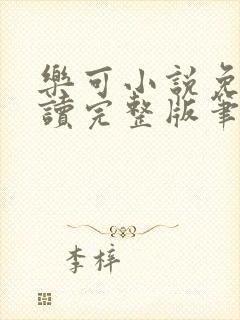 樂可小說免
讀完整版筆
李梓